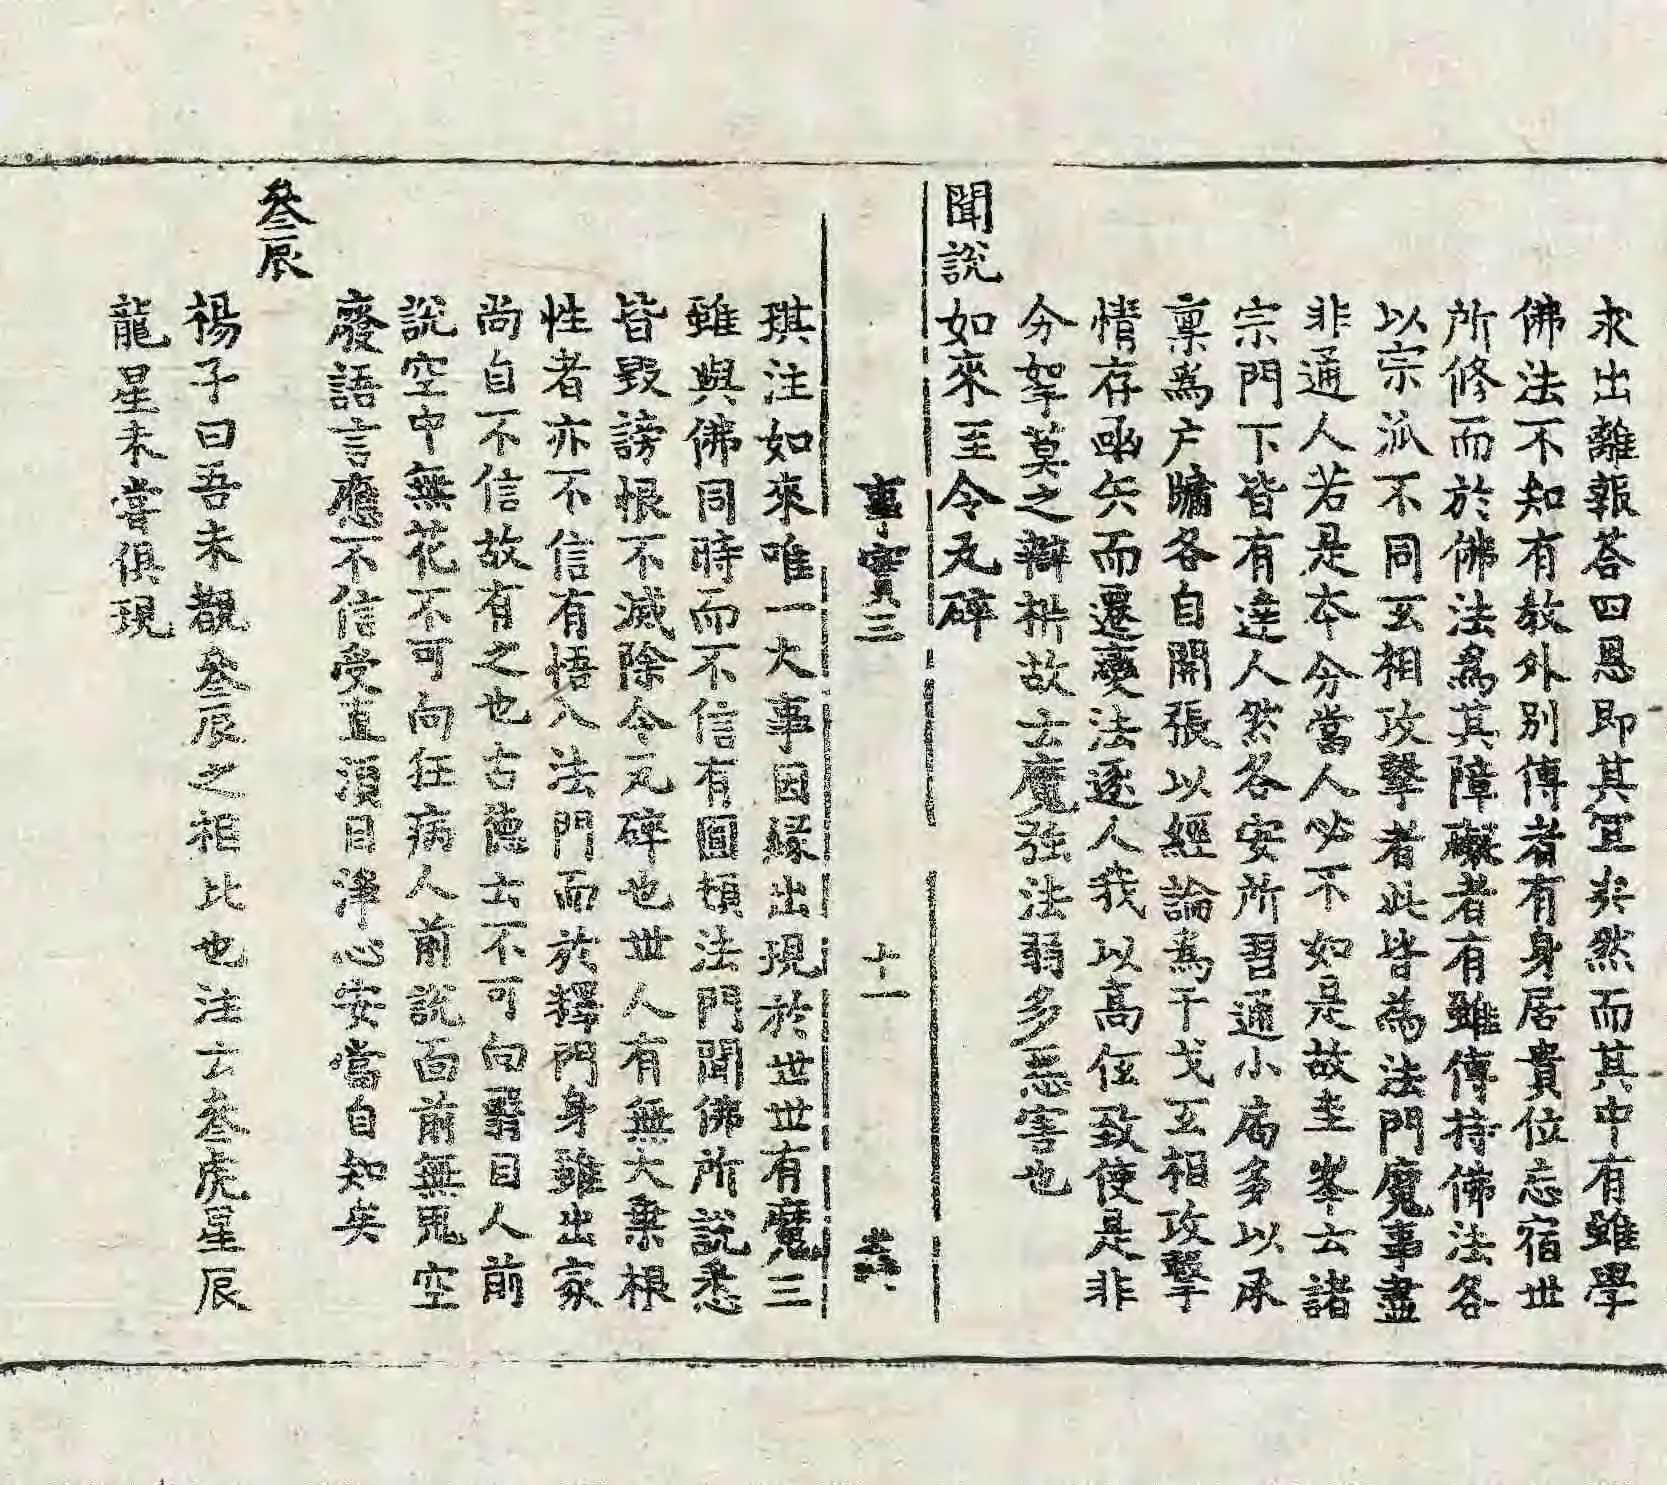 求出離報荅四恩即其宜矣然而其中有雖學
佛法不知有教外別傳者有身居貴位忘宿世
所修而於佛法為其障礙者有雖傳持佛法各
以宗派不同互相攻擊者此皆為法門魔事盡
非通人若是本分當人必不如是故圭峯云諸
宗門下皆有達人然各安所習通小局多以承
稟為户牖各自開張以經論為干戈互相攻擊
情存函矢而遷變法逐人我以高低致使是非
分拏莫之辯析故云魔強法弱多怨害也
聞說如來至令瓦碎
事實三 十一
琪注如來唯一大事因緣出現於世世有魔三
雖與佛同時而不信有圓頓法門聞佛所說悉
皆毀謗恨不滅除令瓦碎也世人有無大乘根
性者亦不信有悟入法門而於釋門身雖出家
尚自不信故有之也古德云不可向翳目人前
說空中無花不可向狂病人前說面前無鬼空
廢語言應不信受直須目淨心安當自知矣
叄辰
楊子曰吾未覩叄辰之相比也注云叄虎星辰
龍星未嘗俱現